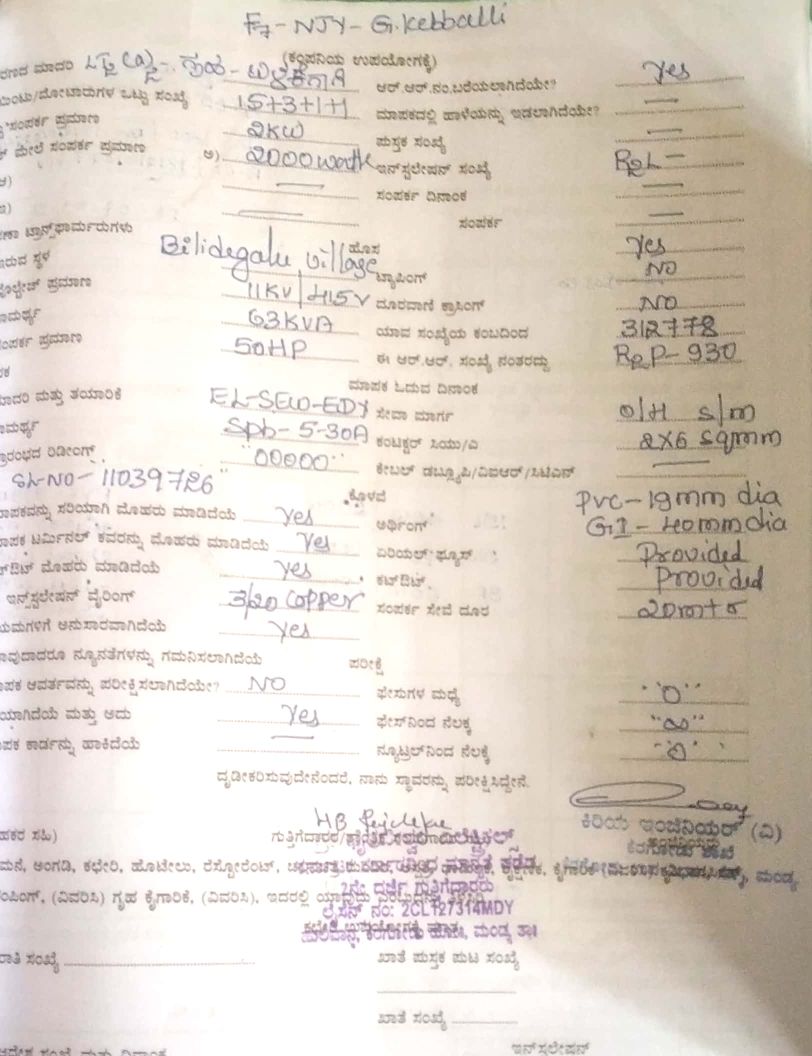 F7-NJY-G.Kebballi
(ಕಂಪನಿಯ ಉಪಯೋಗಕ್ಕೆ)
ಮಾದರಿ LT2(a)2- ಗೃಹ - ಬಳಕೆಗಾಗಿ ಆರ್.ಆರ್.ನಂ.ಬರೆಯಲಾಗಿದೆಯೇ? Yes
ಮೀಟಾರುಗಳ ಒಟ್ಟು ಸಂಖ್ಯೆ 15+3+1+1 ಮಾಪಕದಲ್ಲಿ ಹಾಳೆಯನ್ನು ಇಡಲಾಗಿದೆಯೇ? —
ಸಂಪರ್ಕ ಪ್ರಮಾಣ 2KW ಪುಸ್ತಕ ಸಂಖ್ಯೆ —
ಮೇಲೆ ಸಂಪರ್ಕ ಪ್ರಮಾಣ ಅ) 2000 watt ಇನ್‌ಸ್ಟಲೇಷನ್ ಸಂಖ್ಯೆ R2L-
— ಸಂಪರ್ಕ ದಿನಾಂಕ —
— ಸಂಪರ್ಕ —
ಟ್ರಾನ್ಸ್‌ಫಾರ್ಮರುಗಳು ಹೊಸ Yes
ಇರುವ ಸ್ಥಳ Bilidegalu village ಟ್ಯಾಪಿಂಗ್ NO
ವೋಲ್ಟೇಜ್ ಪ್ರಮಾಣ 11KV/415V ದೂರವಾಣಿ ಕ್ರಾಸಿಂಗ್ NO
ಸಾಮರ್ಥ್ಯ 63KVA ಯಾವ ಸಂಖ್ಯೆಯ ಕಂಬದಿಂದ 312778
ಸಂಪರ್ಕ ಪ್ರಮಾಣ 50HP ಈ ಆರ್.ಆರ್. ಸಂಖ್ಯೆ ನಂತರದ್ದು R2P-930
ಮಾಪಕ ಓದುವ ದಿನಾಂಕ
ಮಾದರಿ ಮತ್ತು ತಯಾರಿಕೆ EL-SEW-EDY ಸೇವಾ ಮಾರ್ಗ O/H s/m
ಸಾಮರ್ಥ್ಯ Sph-5-30A ಕಂಡಕ್ಟರ್ ಸಿಯು/ಎ 2X6 sqmm
ಪ್ರಾರಂಭದ ರಿಡೀಂಗ್ "00000" ಕೇಬಲ್ ಡಬ್ಲ್ಯೂಪಿ/ವಿಐಆರ್/ಸಿಟಿಎಸ್ —
SL-NO-11039726 ಕೊಳವೆ PVC-19mm dia
ಮಾಪಕವನ್ನು ಸರಿಯಾಗಿ ಮೊಹರು ಮಾಡಿದೆಯೆ Yes ಅರ್ಥಿಂಗ್ GI-40mm dia
ಮಾಪಕ ಟರ್ಮಿನಲ್ ಕವರನ್ನು ಮೊಹರು ಮಾಡಿದೆಯೆ Yes ಏರಿಯಲ್ ಫ್ಯೂಸ್ Provided
ಮೊಹರು ಮಾಡಿದೆಯೆ Yes ಕಟ್‌ಔಟ್ Provided
ಇನ್‌ಸ್ಟಲೇಷನ್ ವೈರಿಂಗ್ 3/20 Copper ಸಂಪರ್ಕ ಸೇವೆ ದೂರ 20mtr
ನಿಯಮಗಳಿಗೆ ಅನುಸಾರವಾಗಿದೆಯೆ Yes
ಯಾವುದಾದರೂ ನ್ಯೂನತೆಗಳನ್ನು ಗಮನಿಸಲಾಗಿದೆಯೆ ಪರೀಕ್ಷೆ
ಮಾಪಕ ಆವರ್ತವನ್ನು ಪರೀಕ್ಷಿಸಲಾಗಿದೆಯೇ? NO ಫೇಸುಗಳ ಮಧ್ಯೆ "0"
ಮತ್ತು ಅದು Yes ಫೇಸ್‌ನಿಂದ ನೆಲಕ್ಕೆ "∞"
ಮಾಪಕ ಕಾರ್ಡನ್ನು ಹಾಕಿದೆಯೆ — ನ್ಯೂಟ್ರಲ್‌ನಿಂದ ನೆಲಕ್ಕೆ "0"
ದೃಢೀಕರಿಸುವುದೇನೆಂದರೆ, ನಾನು ಸ್ಥಾವರನ್ನು ಪರೀಕ್ಷಿಸಿದ್ದೇನೆ.
ಸಹಿ) ಗುತ್ತಿಗೆದಾರರ ಕಿರಿಯ ಇಂಜಿನಿಯರ್ (ವಿ)
ಕೆರಗೋಡು ಶಾಖೆ
ಮನೆ, ಅಂಗಡಿ, ಕಛೇರಿ, ಹೋಟೇಲು, ರೆಸ್ಟೋರೆಂಟ್, ಮಂಡ್ಯ
ಪಂಪಿಂಗ್, (ವಿವರಿಸಿ) ಗೃಹ ಕೈಗಾರಿಕೆ, (ವಿವರಿಸಿ), ಇದರಲ್ಲಿ
2ನೇ ದರ್ಜೆ ಗುತ್ತಿಗೆದಾರರು
ಲೈಸನ್ಸ್ ನಂ: 2CL127314MDY
ಮಂಡ್ಯ ತಾ॥
ಸಂಖ್ಯೆ ಖಾತೆ ಪುಸ್ತಕ ಪುಟ ಸಂಖ್ಯೆ
ಖಾತೆ ಸಂಖ್ಯೆ
ಇನ್‌ಸ್ಟಲೇಷನ್